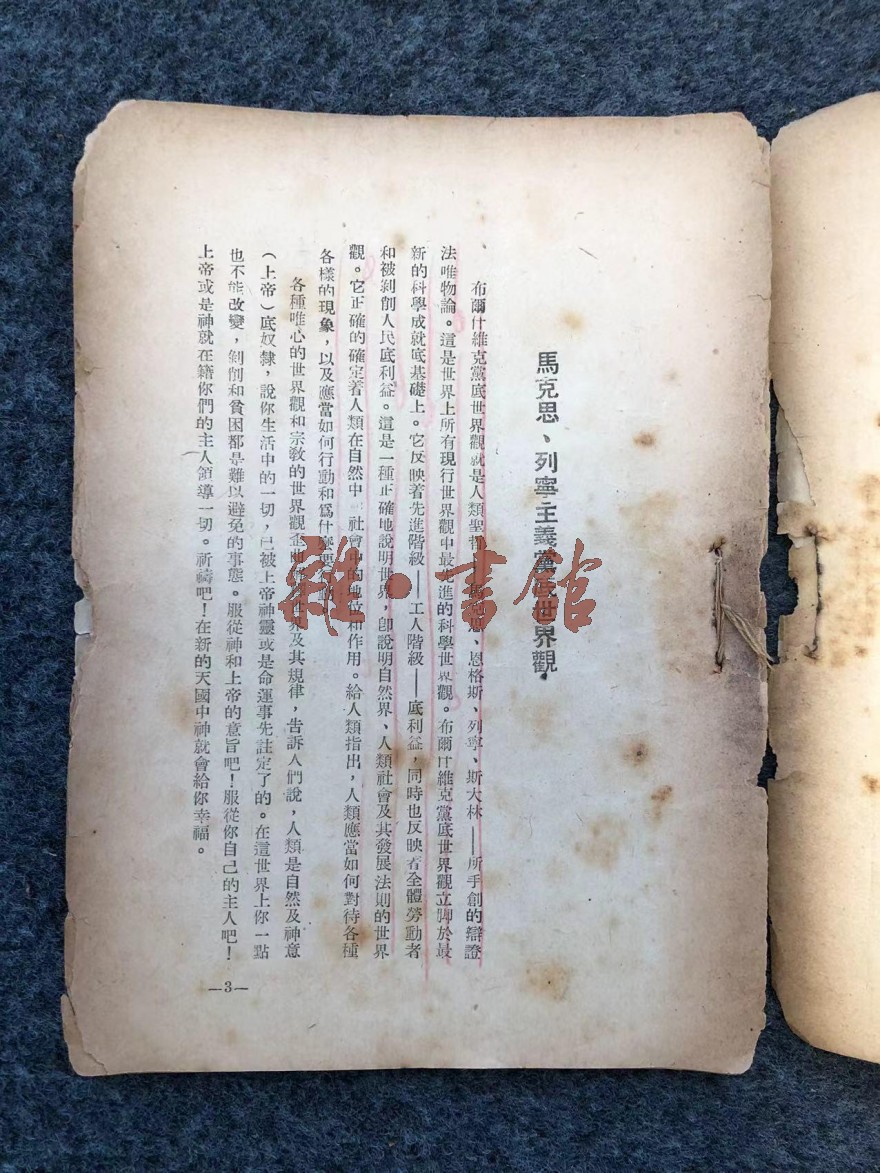 馬克思、列寧主義黨底世界觀
布爾什維克黨底世界觀就是人類聖哲思、恩格斯、列寧、斯大林——所手創的辯證
法唯物論。這是世界上所有現行世界觀中最進的科學世界觀。布爾什維克黨底世界觀立脚於最
新的科學成就底基礎上。它反映着先進階級——工人階級——底利益，同時也反映着全體勞動者
和被剝削人民底利益。這是一種正確地說明世界，卽說明自然界、人類社會及其發展法則的世界
觀。它正確的確定着人類在自然中社會中的地位和作用。給人類指出，人類應當如何對待各種
各樣的現象，以及應當如何行動和爲什麼要
各種唯心的世界觀和宗教的世界觀企界及其規律，告訴人們說，人類是自然及神意
（上帝）底奴隸，說你生活中的一切，已被上帝神靈或是命運事先註定了的。在這世界上你一點
也不能改變，剝削和貧困都是難以避免的事態。服從神和上帝的意旨吧！服從你自己的主人吧！
上帝或是神就在籍你們的主人領導一切。祈禱吧！在新的天國中神就會給你幸福。
—3—
雜·書館